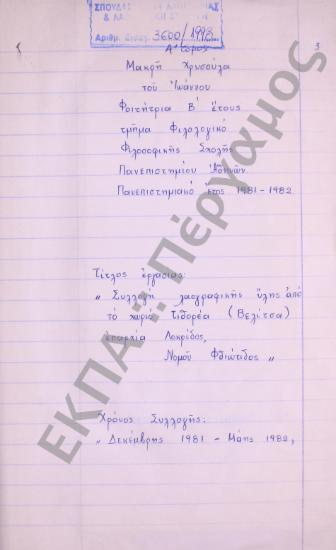 ΣΠΟΥΔΕΣ
Αριθμ. Εισαγ. 3600/1993
Α' τόμος
3
Μακρή Χρυσούλα
του Ιωάννου
Φοιτήτρια Β' έτους
τμήμα Φιλολογικό
Φιλοσοφικής Σχολής
Πανεπιστημίου Αθηνών
Πανεπιστημιακό έτος 1981-1982
Τίτλος έργασίας:
" Συλλογή λαογραφικής ύλης από
το χωριό Τιθορέα (Βελίτσα)
επαρχία Λοκρίδος,
Νομού Φθιώτιδος "
Χρόνος Συλλογής:
" Δεκέμβρης 1981 - Μάης 1982,
ΕΚΠΑ :: Πέργαμος